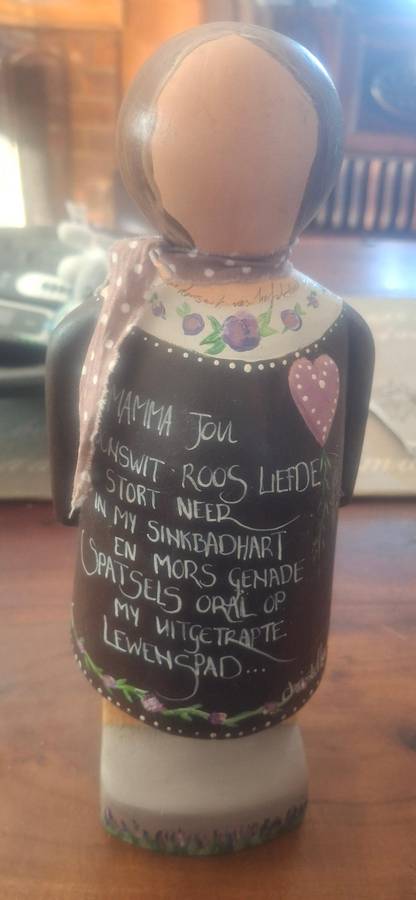 MAMMA JOU
UNSWIT ROOS LIEFDE
STORT NEER
IN MY SINKBADHART
EN MORS GENADE
SPATSELS ORAL OP
MY UITGETRAPTE
LEWENSPAD...